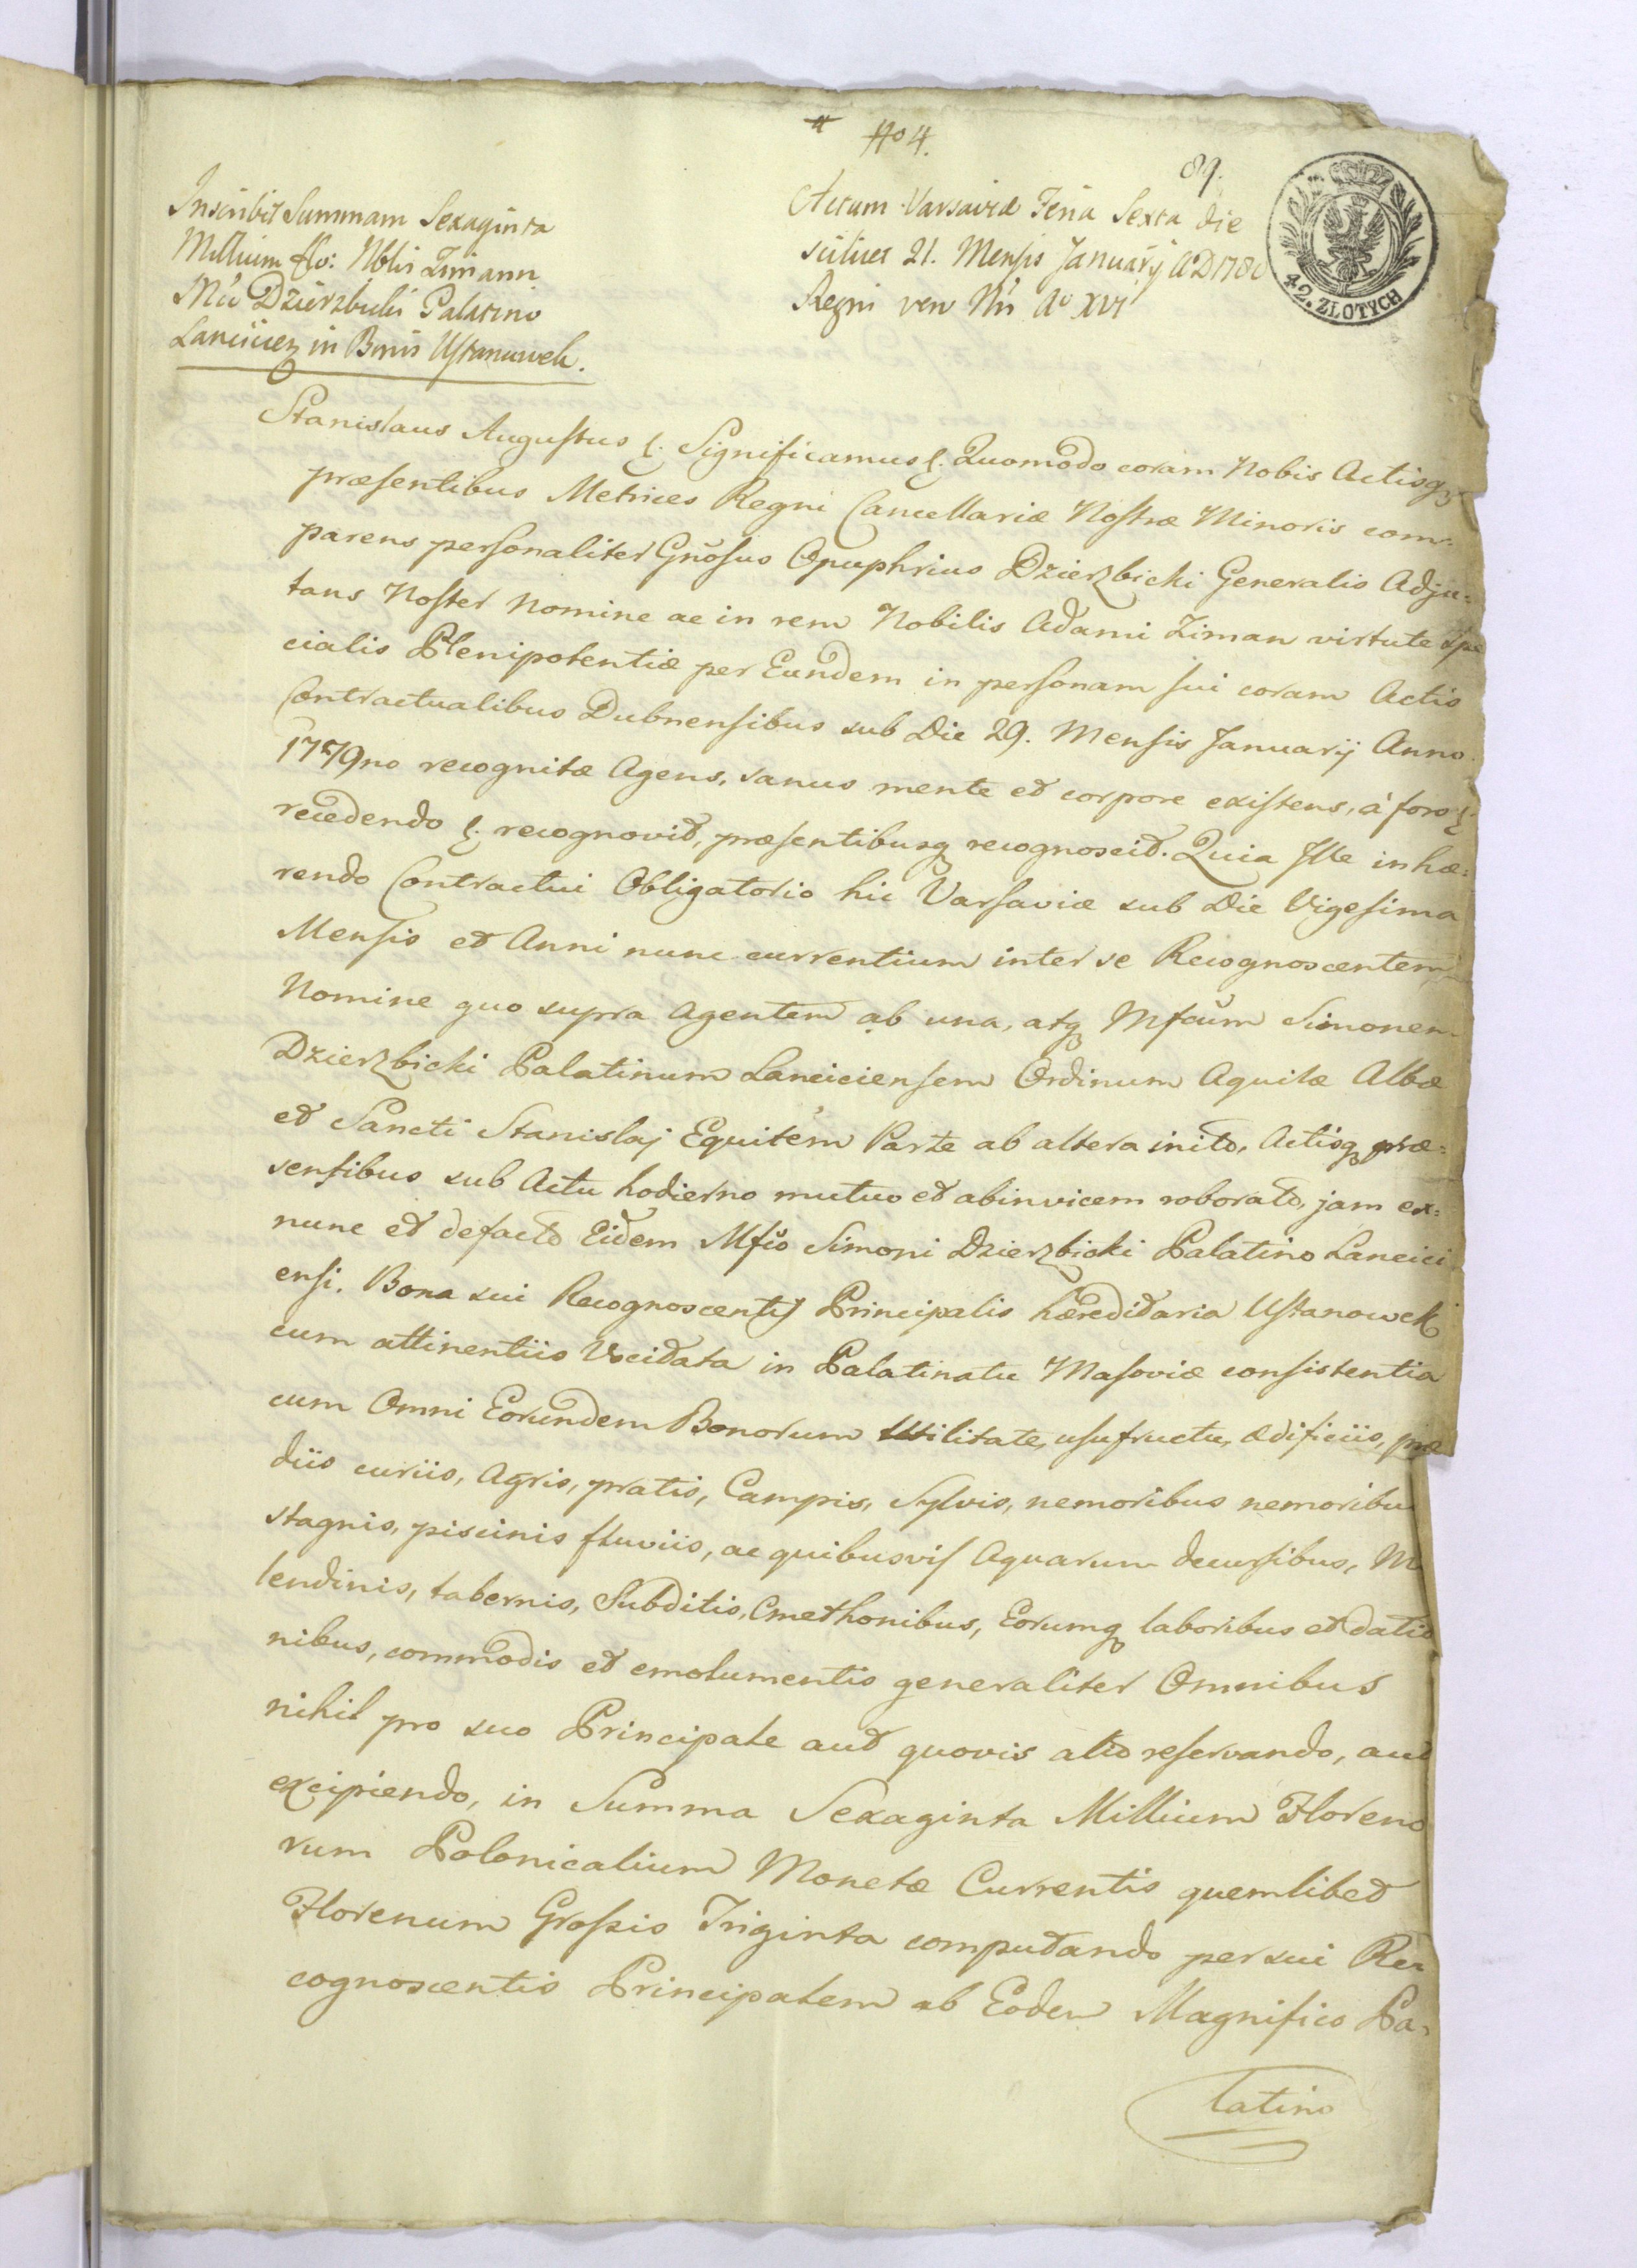 No 4.
89.
Inscribit Summam Sexaginta
Millium flo: Nblis Zimann
Mco Dzierzbicki Palatino
Lancicien in Bonis Ustanowek.
Actum Varsaviæ Feria Sexta die
scilicet 21. Mensis Januarij AD 1780
Regni vero Nri Ao XVI
42. ZŁOTYCH
Stanislaus Augustus &. Significamus &. Quomodo coram Nobis Actisq
præsentibus Metrices Regni Cancellariæ Nostræ Minoris com-
parens personaliter Gnosus Onuphrius Dzierzbicki Generalis Adju=
tans Noster Nomine ac in rem Nobilis Adami Ziman virtute spe
cialis Plenipotentiæ per Eundem in personam sui coram Actis
Contractualibus Dubnensibus sub Die 29. Mensis Januarij Anno
1779no recognitæ Agens, sanus mente et corpore existens, à foro &
recedendo &. recognovit, præsentibusq recognoscit. Quia Ille inhæ=
rendo Contractui Obligatorio hic Varsaviæ sub Die Vigesima
Mensis et Anni nunc currentium inter se Recognoscentem
Nomine quo supra Agentem ab una, atq Mfcum Simonem
Dzierzbicki Palatinum Lanciciensem Ordinum Aquilæ Albæ
et Sancti Stanislaj Equitem Parte ab altera inito, Actisq præ=
sentibus sub Actu hodierno mutuo et abinvicem roborato, jam ex=
nunc et defacto Eidem Mfco Simoni Dzierzbicki Palatino Lancici
ensi. Bona sui Recognoscentis Principalis hæreditaria Ustanowek
cum attinentiis Vocitata in Palatinatu Masoviæ consistentia
cum Omni Eorundem Bonorum Utilitate, usufructu, ædificiis, præ
diis curiis, Agris, pratis, Campis, Sylvis, nemoribus nemoribu
stagnis, piscinis fluviis, ac quibusvis Aquarum decursibus, Mo
lendinis, tabernis, Subditis, Cmethonibus, Eorumq laboribus et datio
nibus, commodis et emolumentis generaliter Omnibus
nihil pro suo Principale aut quovis alio reservando, aut
excipiendo, in Summa Sexaginta Millium Floreno
rum Polonicalium Monetæ Currentis quemlibet
Florenum Grossis Triginta computando per sui Re=
cognoscentis Principalem ab Eodem Magnifico Pa-
latino